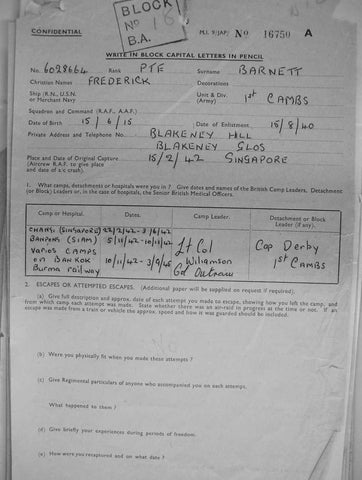 BLOCK
No 16
B.A.
CONFIDENTIAL
M.I. 9/JAP/ No 16750 A
WRITE IN BLOCK CAPITAL LETTERS IN PENCIL
No. 6028664 Rank PTE Surname BARNETT
Christian Names FREDERICK Decorations
Ship (R.N., U.S.N. or Merchant Navy Unit & Div. (Army) 1st CAMBS
Squadron and Command (R.A.F., A.A.F.)
Date of Birth 15/6/15 Date of Enlistment 15/8/40
Private Address and Telephone No. BLAKENEY HILL
BLAKENEY GLOS
Place and Date of Original Capture 15/2/42 SINGAPORE
(Aircrew R.A.F. to give place and date of a/c crash).
1. What camps, detachments or hospitals were you in? Give dates and names of the British Camp Leaders, Detachment
(or Block) Leaders or, in the case of hospitals, the Senior British Medical Officers.
Camp or Hospital. Dates. Camp Leader. Detachment or Block Leader (if any).
CHANGI (SINGAPORE) 22/2/42 - 3/6/42
BANPONG (SIAM) 5/11/42 - 10/11/42 Lt Col Cap Derby
VARIOS CAMPS
on BANKOK 10/11/42 - 3/9/45 Wiliamson 1st CAMBS
Burma railway Col
2. ESCAPES OR ATTEMPTED ESCAPES. (Additional paper will be supplied on request if required).
(a) Give full description and approx. date of each attempt you made to escape, showing how you left the camp, and
from which camp each attempt was made. State whether there was an air-raid in progress at the time or not. If
escape was made from a train or vehicle the approx. speed and how it was guarded should be included.
(b) Were you physically fit when you made these attempts?
(c) Give Regimental particulars of anyone who accompanied you on each attempt.
What happened to them?
(d) Give briefly your experiences during periods of freedom.
(e) How were you recaptured and on what date?